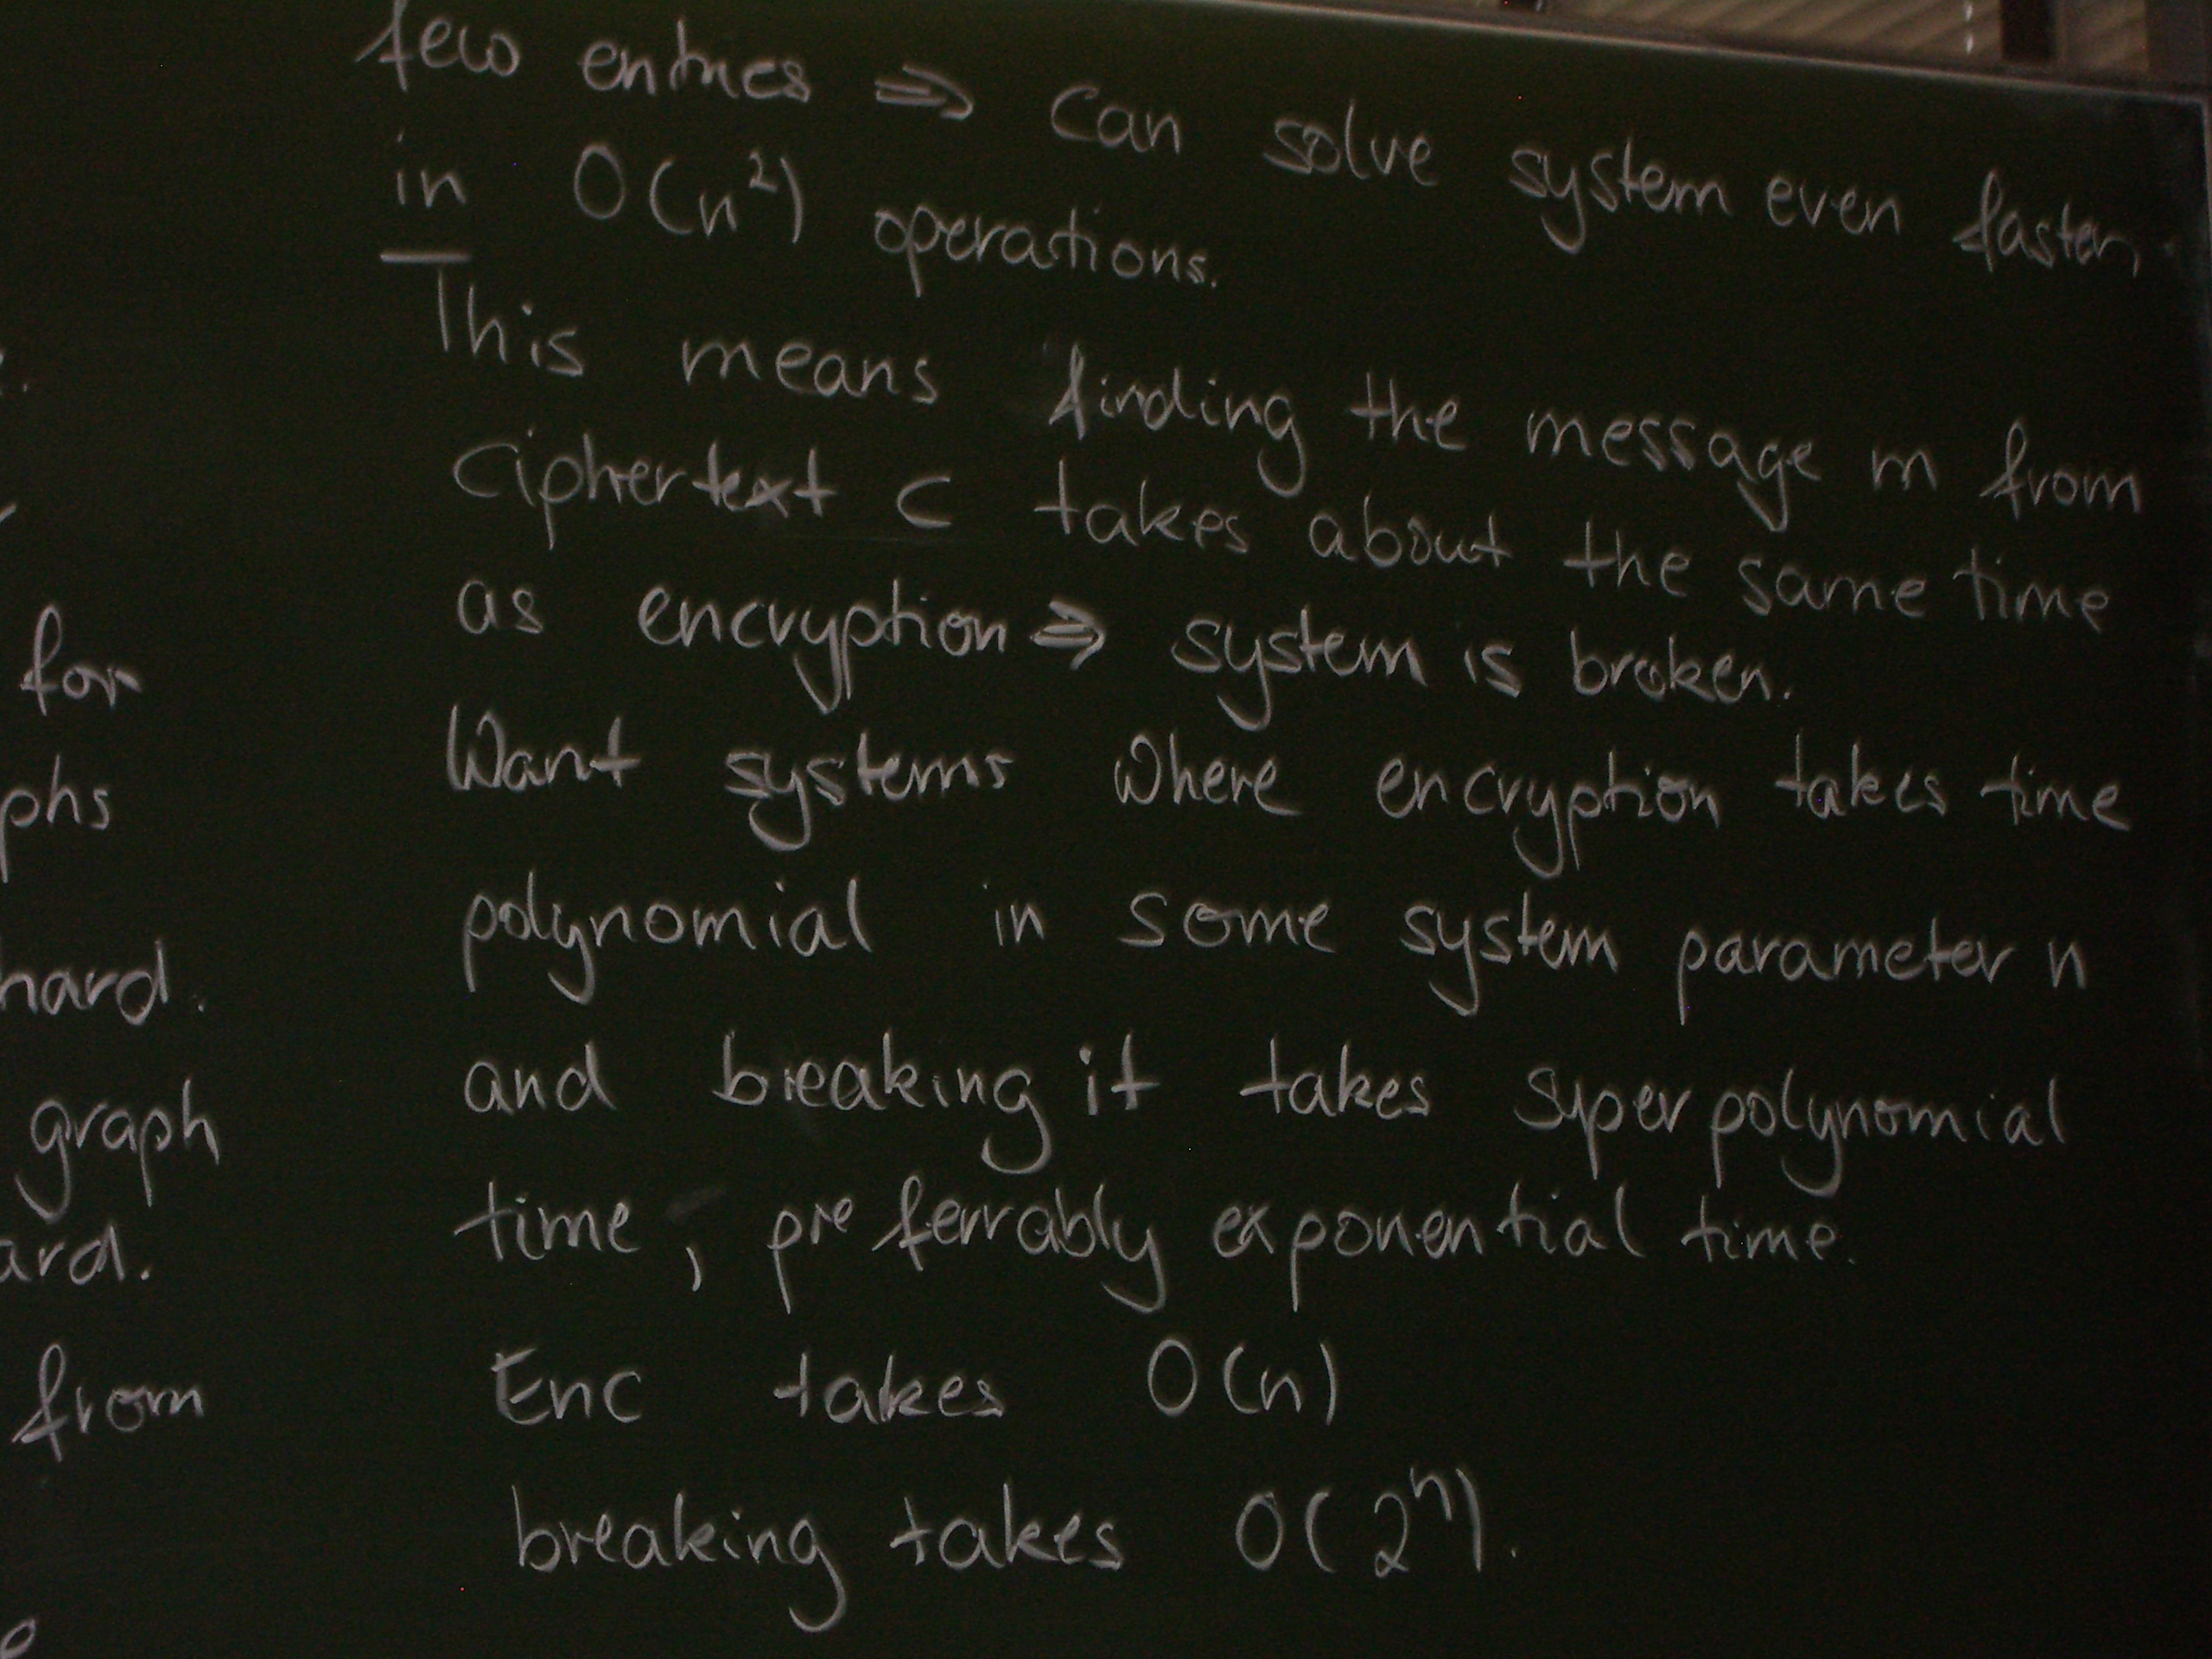 few entries ⇒ Can solve system even faster,
in O(n²) operations.
This means finding the message m from
ciphertext c takes about the same time
as encryption ⇒ system is broken.
Want systems where encryption takes time
polynomial in some system parameter n
and breaking it takes superpolynomial
time, preferrably exponential time.
Enc takes O(n)
breaking takes O(2ⁿ).
for
phs
hard.
graph
ard.
from